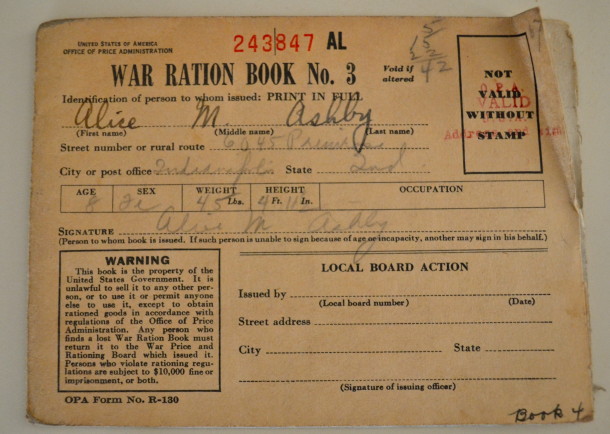 UNITED STATES OF AMERICA
OFFICE OF PRICE ADMINISTRATION
243847 AL
WAR RATION BOOK No. 3
Void if
altered
NOT
VALID
WITHOUT
STAMP
O.P.A.
VALID
Identification of person to whom issued: PRINT IN FULL
Alice M. Ashby
(First name) (Middle name) (Last name)
Street number or rural route 6045
City or post office Indianapolis State Ind.
AGE SEX WEIGHT HEIGHT OCCUPATION
8 Fe 45 Lbs. 4 Ft. In.
SIGNATURE Alice M Ashby
(Person to whom book is issued. If such person is unable to sign because of age or incapacity, another may sign in his behalf.)
WARNING
This book is the property of the
United States Government. It is
unlawful to sell it to any other per-
son, or to use it or permit anyone
else to use it, except to obtain
rationed goods in accordance with
regulations of the Office of Price
Administration. Any person who
finds a lost War Ration Book must
return it to the War Price and
Rationing Board which issued it.
Persons who violate rationing regu-
lations are subject to $10,000 fine or
imprisonment, or both.
LOCAL BOARD ACTION
Issued by
(Local board number) (Date)
Street address
City State
(Signature of issuing officer)
OPA Form No. R-130
Book 4